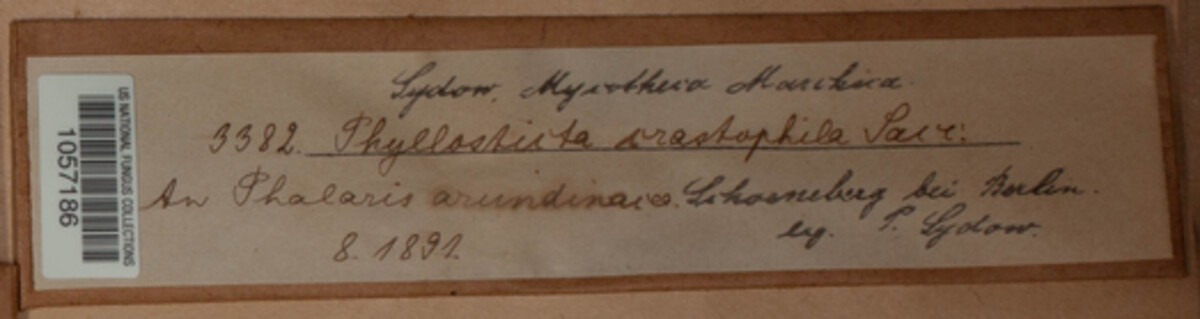 Sydow, Mycotheca Marchica.
3382. Phyllosticta crastophila Sacc.
An Phalaris arundinacea. Schoeneberg bei Berlin.
8. 1891. leg. P. Sydow.
US NATIONAL FUNGUS COLLECTIONS
1057186